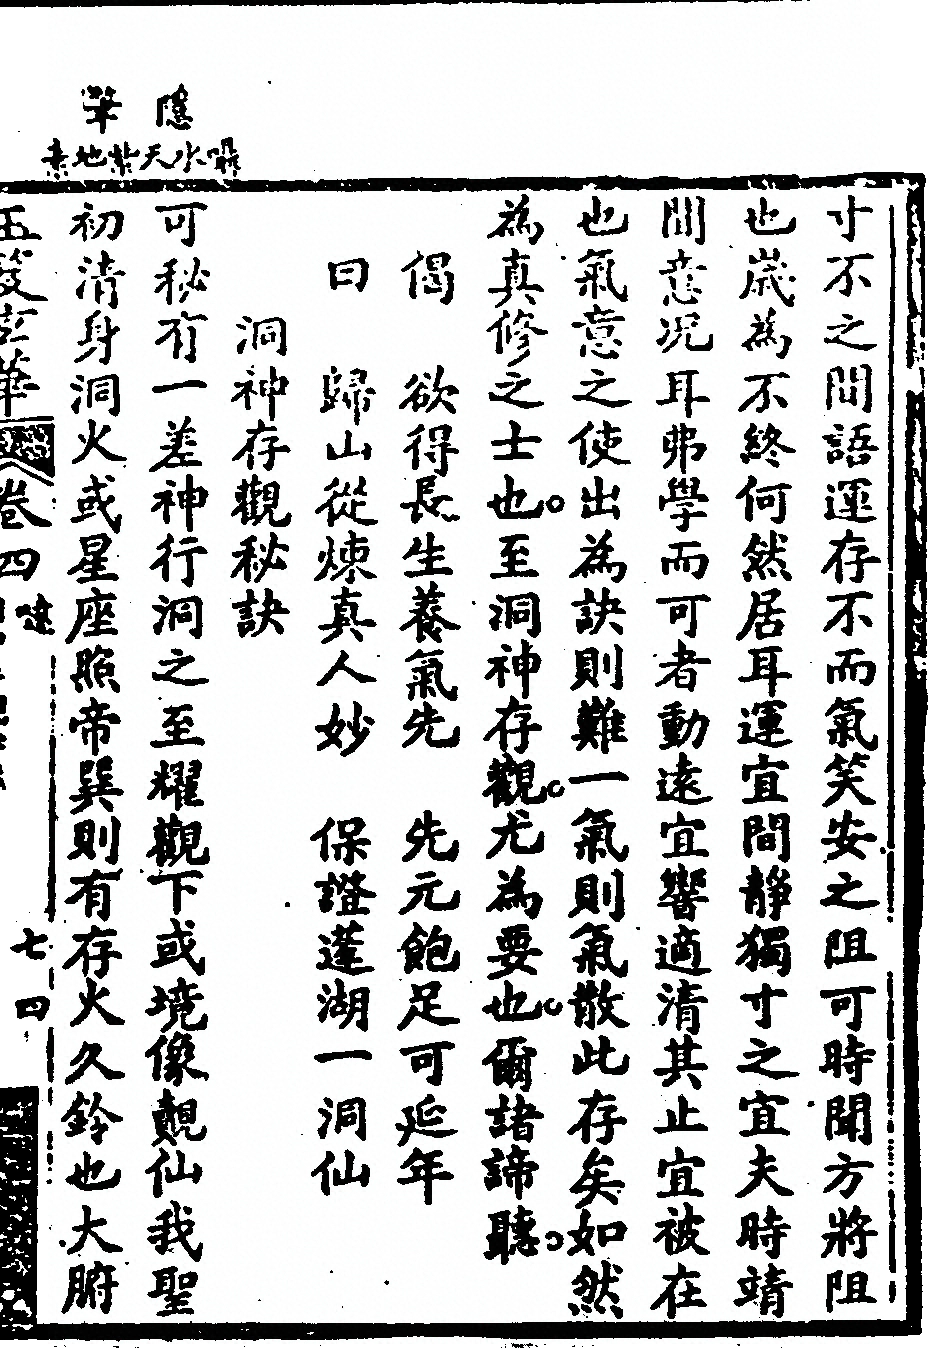 隱
肇
水天紫地素
寸不之間語運存不而氣笑安之阻可時聞方將阻
也歳為不終何然居耳運宜間靜獨寸之宜夫時靖
間意况耳弗學而可者動遠宜響適清其止宜被在
也氣意之使出為訣則難一氣則氣散此存矣如然
為真修之士也至洞神存觀尤為要也爾諸諦聽
偈 欲得長生養氣先 先元飽足可延年
曰 歸山從煉真人妙 保證蓬湖一洞仙
洞神存觀秘訣
可秘有一差神行洞之至耀觀下或境像覿仙我聖
初清身洞火或星座照帝巽則有存火久鈴也大腑
玉笈玄華 卷四 七四